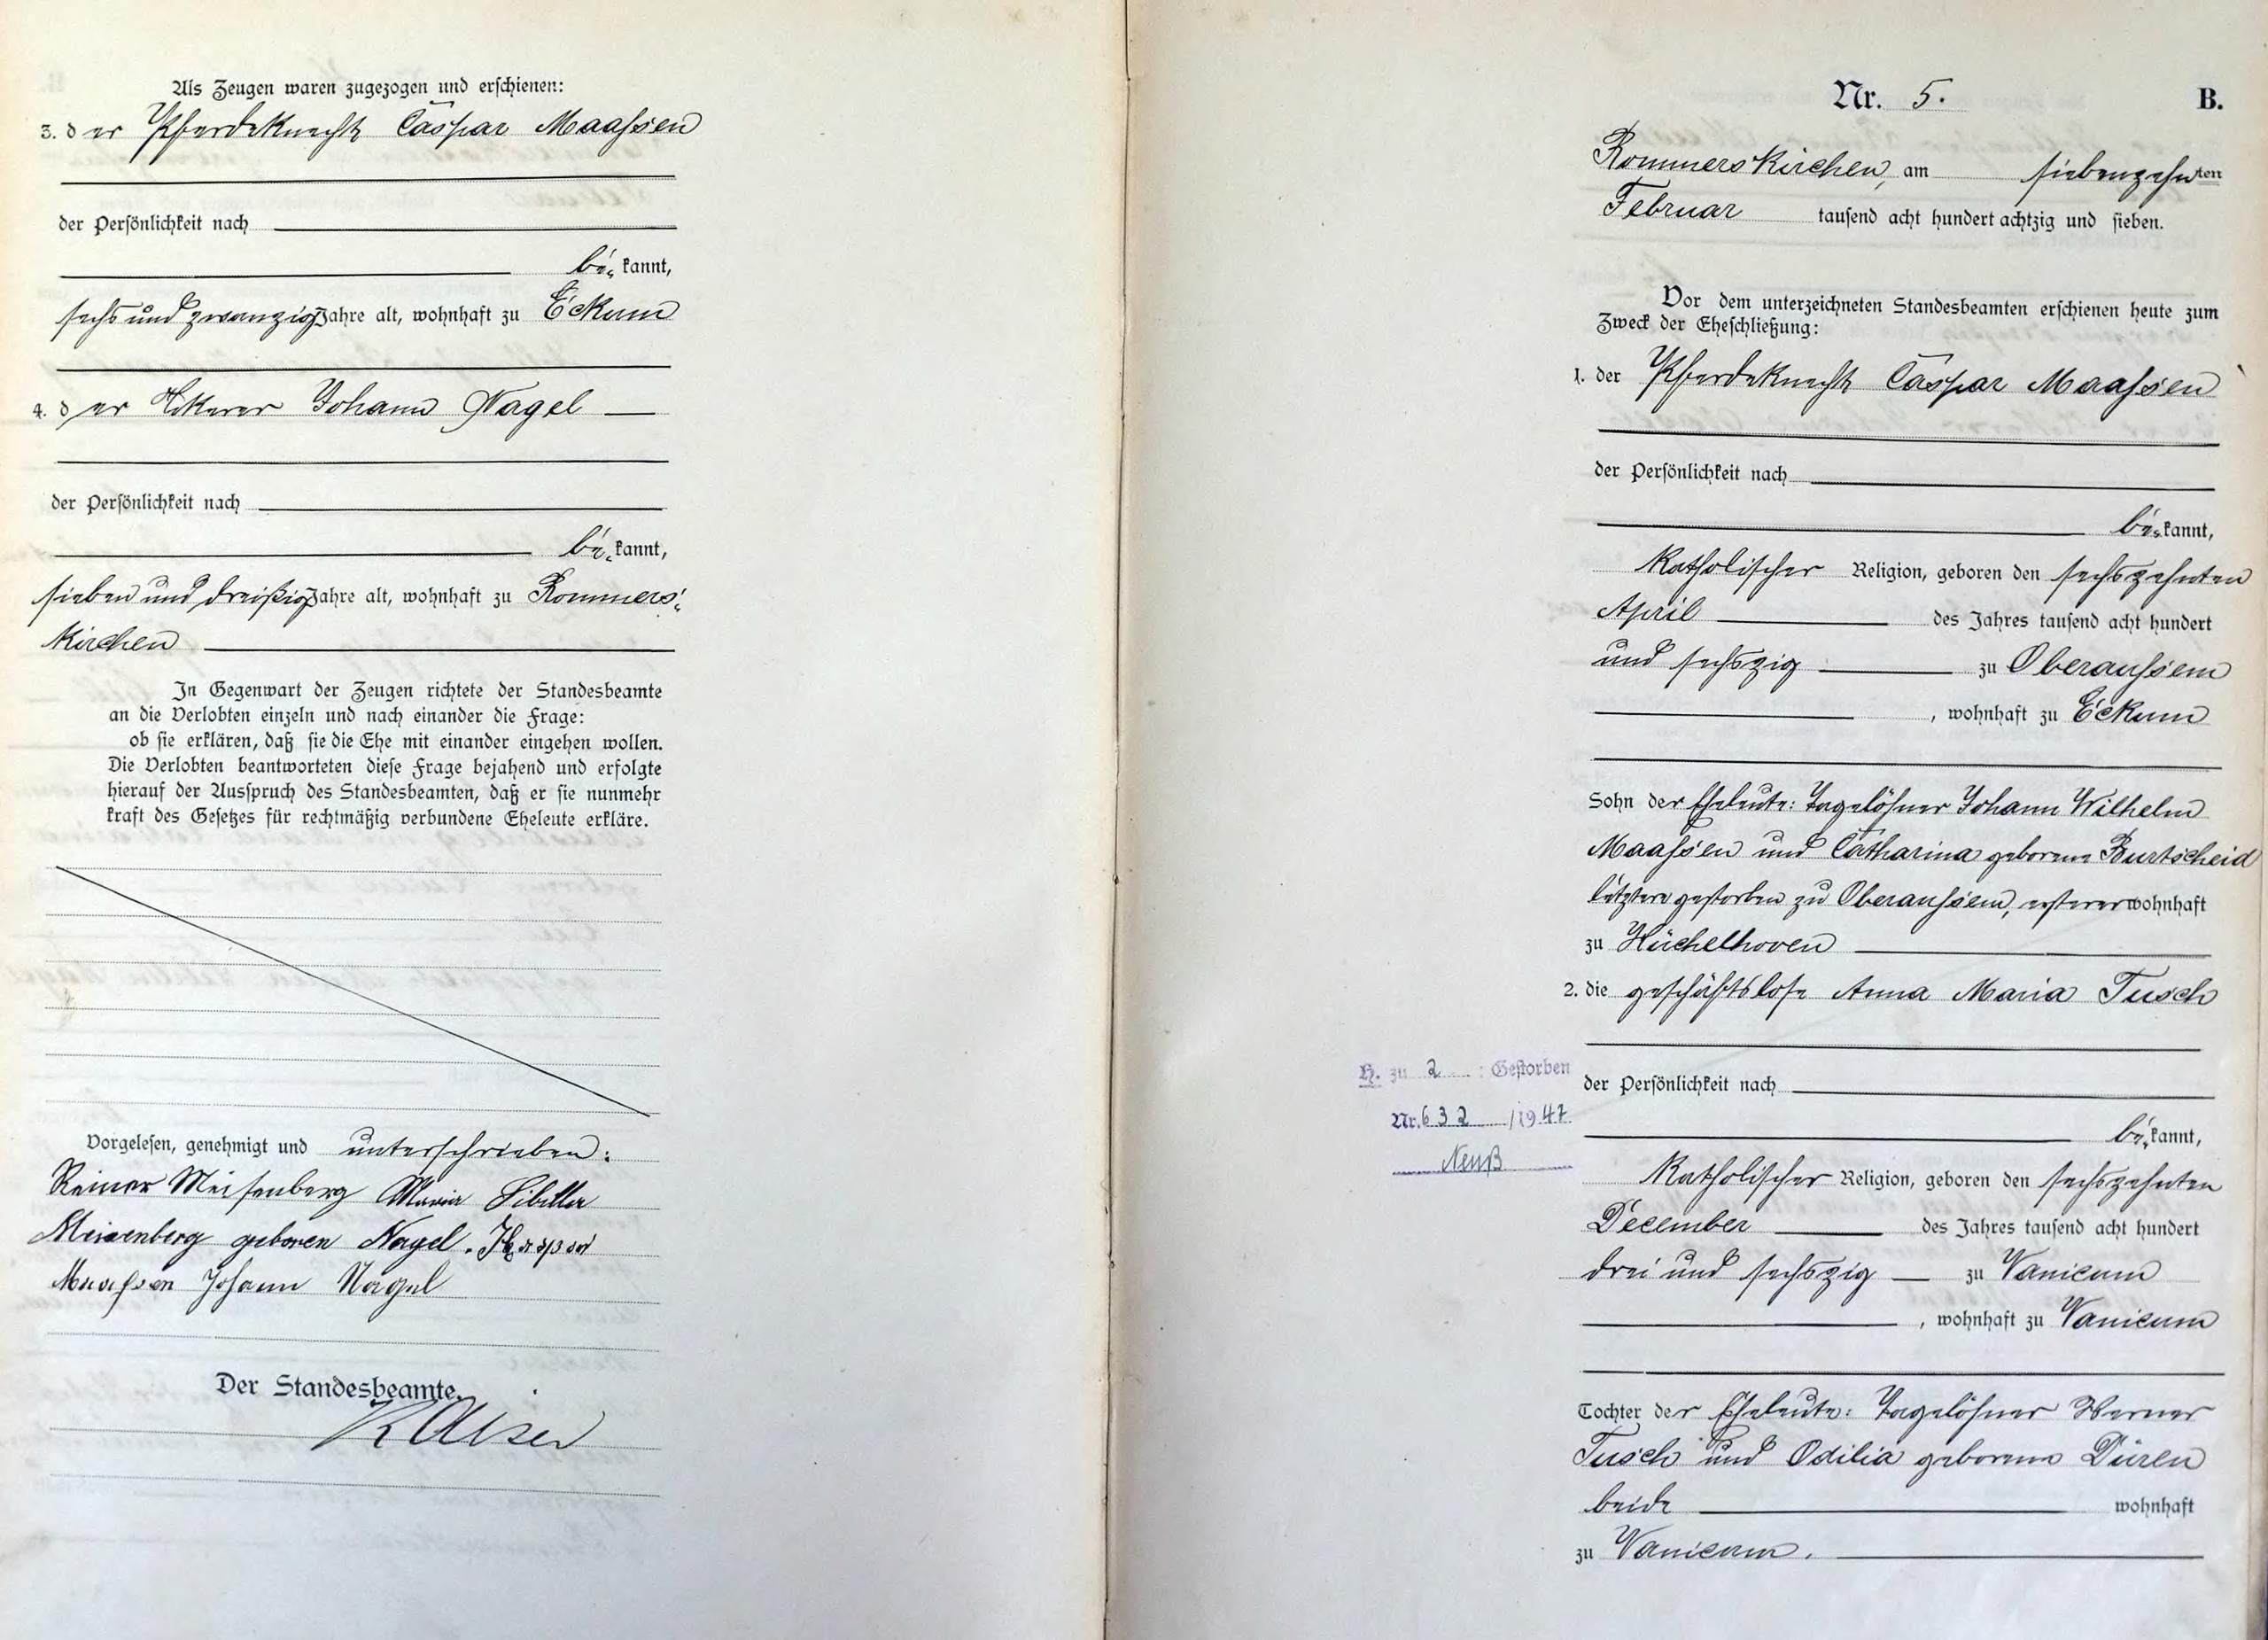 Als Zeugen waren zugezogen und erschienen:
3. der Pferdeknecht Caspar Maaßen
der Persönlichkeit nach
be kannt,
sechs und zwanzig Jahre alt, wohnhaft zu Eckum
4. der Ackerer Johann Nagel
der Persönlichkeit nach
be kannt,
sieben und dreißig Jahre alt, wohnhaft zu Rommers-
kirchen
In Gegenwart der Zeugen richtete der Standesbeamte
an die Verlobten einzeln und nach einander die Frage:
ob sie erklären, daß sie die Ehe mit einander eingehen wollen.
Die Verlobten beantworteten diese Frage bejahend und erfolgte
hierauf der Ausspruch des Standesbeamten, daß er sie nunmehr
kraft des Gesetzes für rechtmäßig verbundene Eheleute erkläre.
Vorgelesen, genehmigt und unterschrieben:
Reiner Meisenberg Maria Sibilla
Meisenberg geboren Nagel. Kaspar
Maaßen Johann Nagel
Der Standesbeamte.
Kaiser
Nr. 5. B.
Rommerskirchen, am siebenzehnten
Februar tausend acht hundert achtzig und sieben.
Vor dem unterzeichneten Standesbeamten erschienen heute zum
Zweck der Eheschließung:
1. der Pferdeknecht Caspar Maaßen
der Persönlichkeit nach
be kannt,
katholischer Religion, geboren den sechszehnten
April des Jahres tausend acht hundert
und sechszig zu Oberaußem
, wohnhaft zu Eckum
Sohn der Eheleute: Tagelöhner Johann Wilhelm
Maaßen und Catharina geborene Burtscheid
letztere gestorben zu Oberaußem, ersterer wohnhaft
zu Hüchelhoven
2. die geschäftslose Anna Maria Tusch
der Persönlichkeit nach
be kannt,
H. zu 2 : Gestorben
Nr. 632 /1947
Neuß
katholischer Religion, geboren den sechszehnten
December des Jahres tausend acht hundert
drei und sechszig zu Vanicum
, wohnhaft zu Vanicum
Tochter der Eheleute: Tagelöhner Werner
Tusch und Odilia geborene Düren
beide wohnhaft
zu Vanicum.